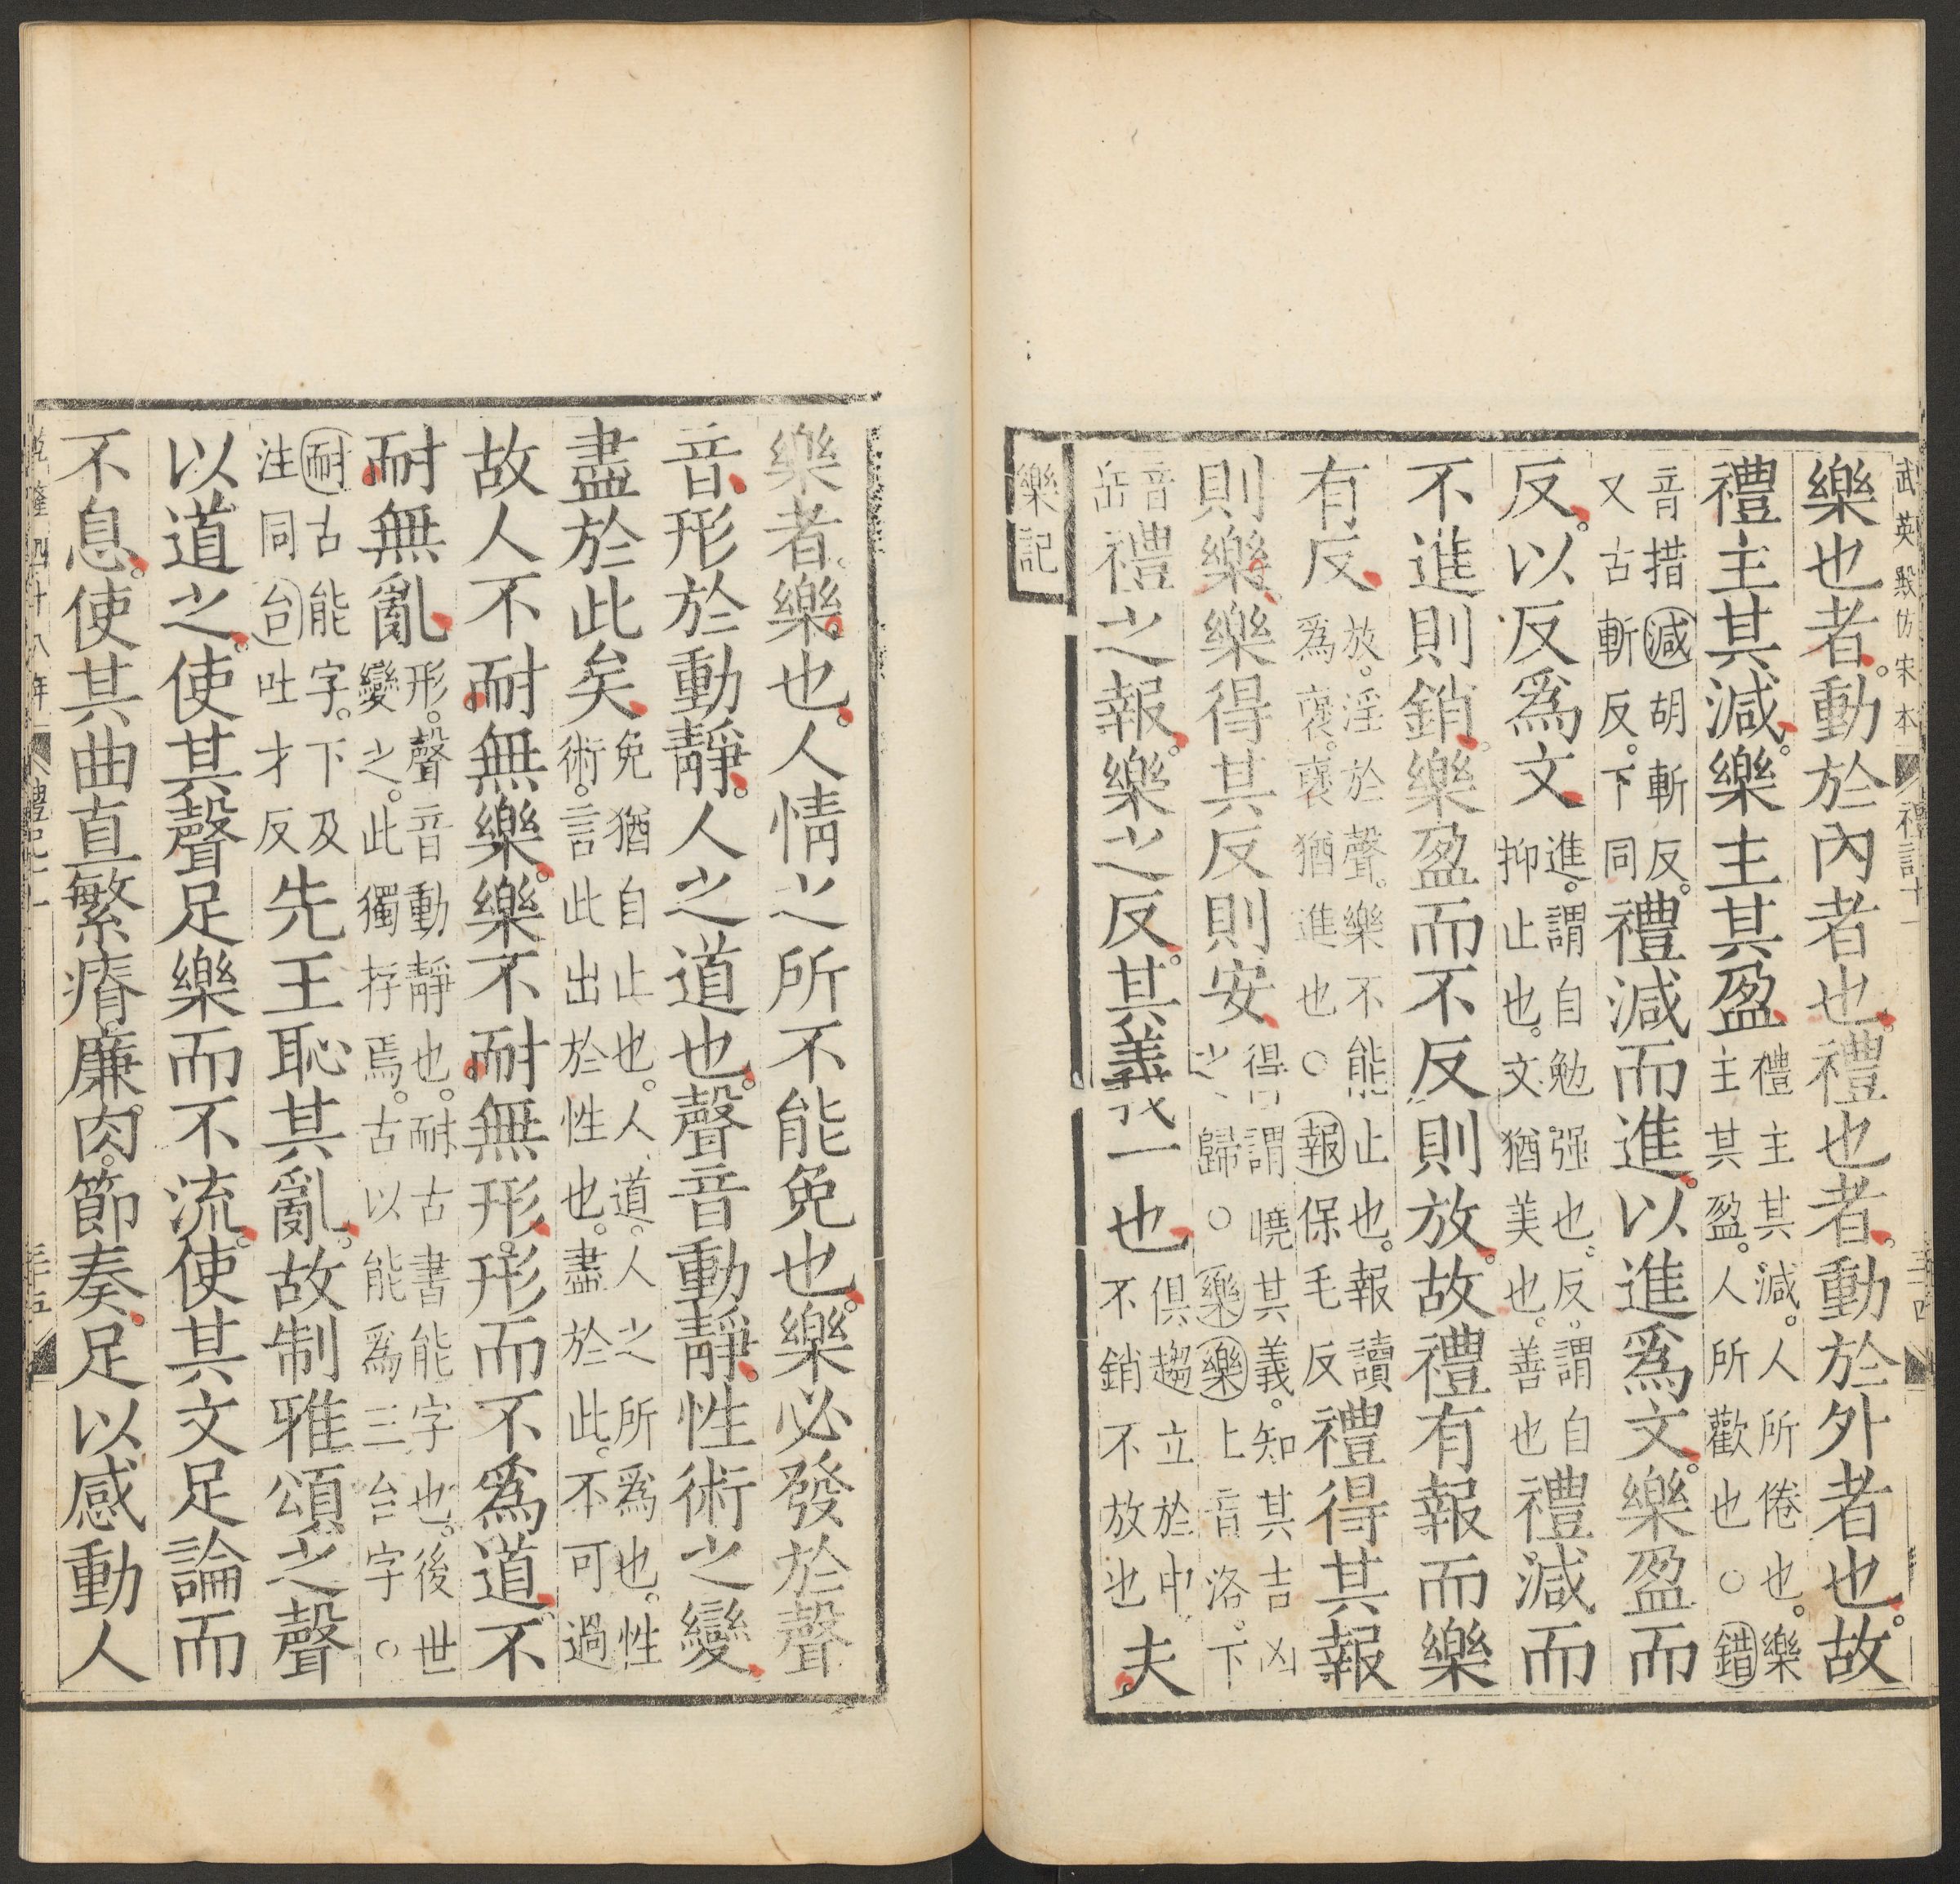 武英殿仿宋本 禮記十一 三十四
樂也者。動於內者也。禮也者。動於外者也。故
禮主其減。樂主其盈禮主其減。人所倦也。樂
主其盈。人所歡也○錯
音措減胡斬反。
又古斬反。下同禮減而進。以進爲文。樂盈而
反。以反爲文進。謂自勉强也。反。謂自
抑止也。文猶美也。善也禮減而
不進則銷。樂盈而不反則放。故禮有報而樂
有反放。淫於聲。樂不能止也。報讀
爲褒。褒猶進也○報保毛反禮得其報
則樂。樂得其反則安得謂曉其義。知其吉凶
之歸○樂樂上音洛。下
音
岳禮之報。樂之反。其義一也俱趨立於中
不銷不放也夫。
樂記
樂者。樂也。人情之所不能免也。樂必發於聲
音。形於動靜。人之道也。聲音動靜。性術之變。
盡於此矣免猶自止也。人道。人之所爲也。性
術。言此出於性也。盡於此。不可過
故人不耐無樂。樂不耐無形。形而不爲道。不
耐無亂形。聲音動靜也。耐古書能字也。後世
變之。此獨存焉。古以能爲三台字○
耐古能字。下及
注同台吐才反先王恥其亂。故制雅頌之聲
以道之。使其聲足樂而不流。使其文足論而
不息。使其曲直繁瘠。廉肉。節奏。足以感動人
乾隆四十八年 禮記十一 三十五